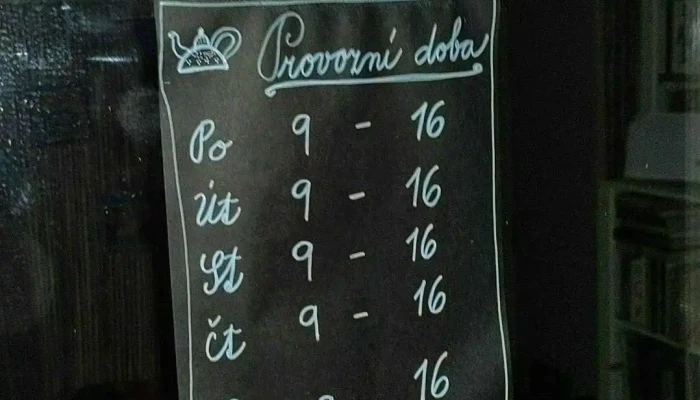 Provozní doba
Po 9 - 16
Út 9 - 16
St 9 - 16
Čt 9 - 16
16